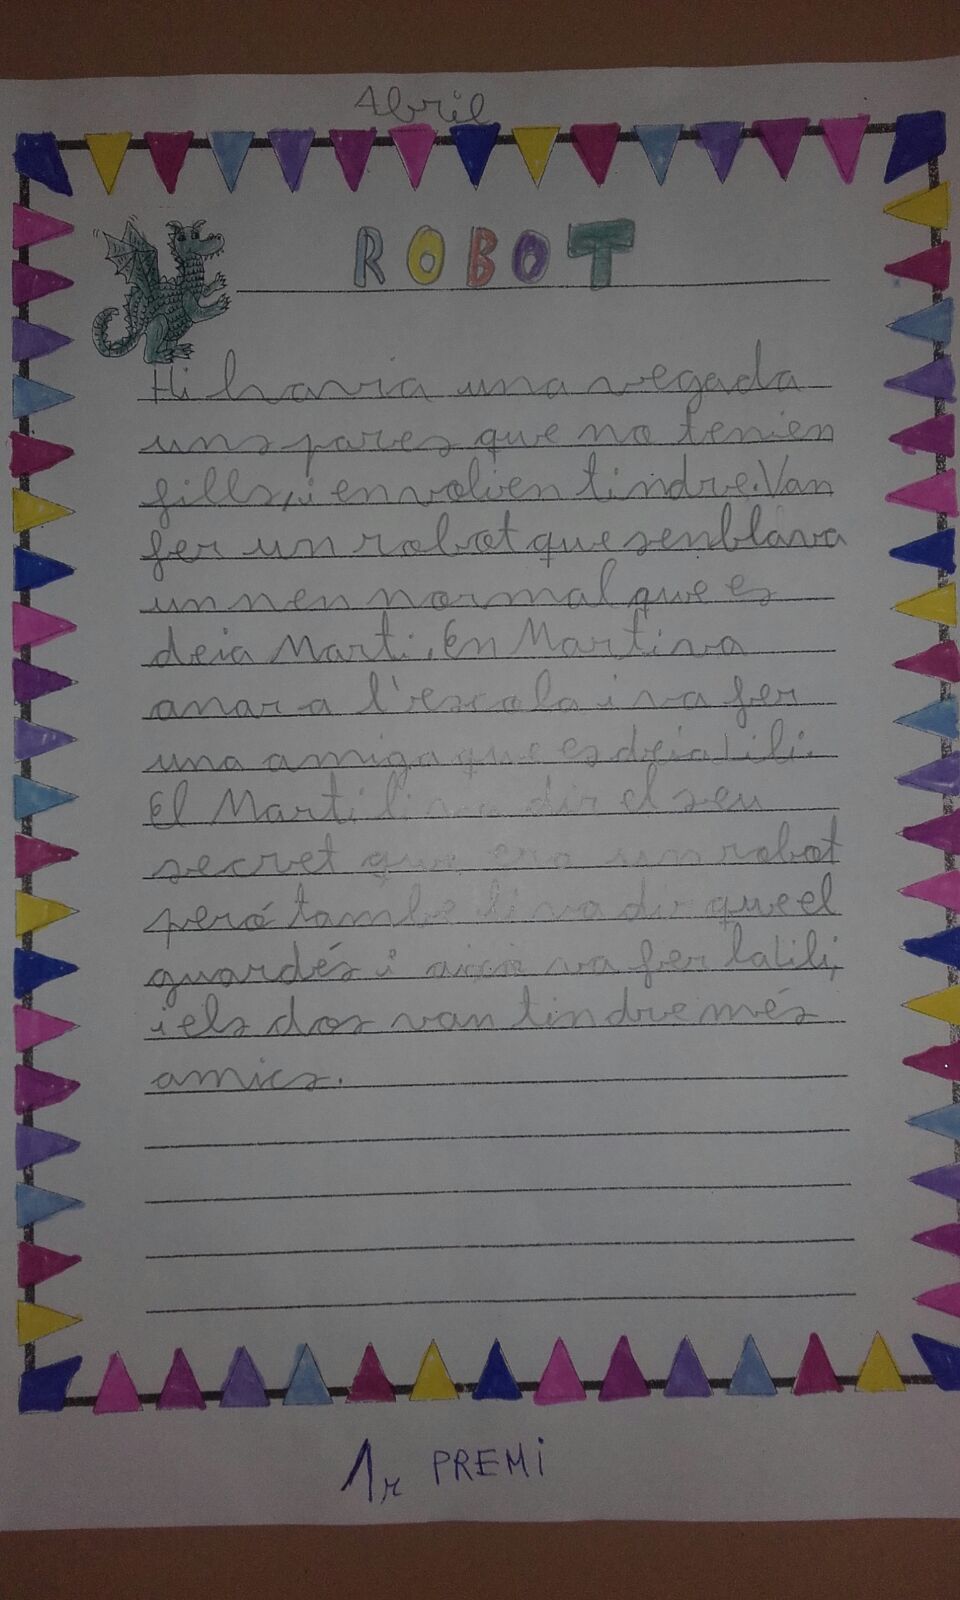 Abril
ROBOT
Hi havia una vegada
uns pares que no tenien
fills, i en volien tindre. Van
fer un robot que senblava
un nen normal que es
deia Marti. En Marti va
anar a l'escola i va fer
una amiga que es deia Lili.
El Marti li va dir el seu
secret que era un robot
peró tambe li va dir que el
guardés i aixi va fer la Lili,
i els dos van tindre més
amics.
1r PREMi